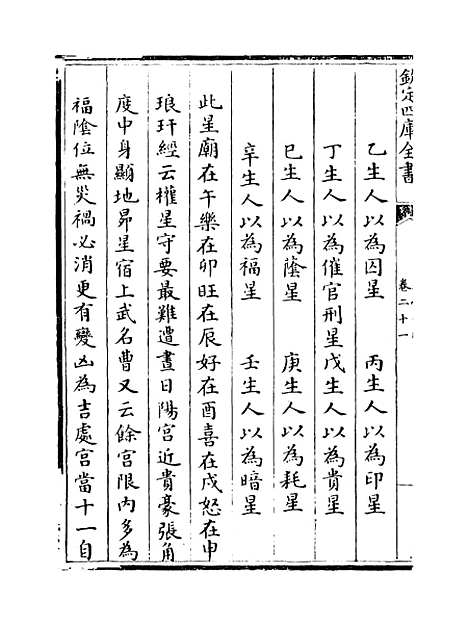 欽定四庫全書
卷二十一
乙生人以為囚星　丙生人以為印星
丁生人以為催官刑星戊生人以為貴星
巳生人以為蔭星　庚生人以為耗星
辛生人以為福星　壬生人以為暗星
此星廟在午樂在卯旺在辰好在酉喜在戌怒在申
琅玕經云權星守要最難遭晝日陽宫近貴豪張角
度中身顯地昴星宿上武名曹又云餘宫限内多為
福隂位無災禍必消更有變凶為吉處宫當十一自